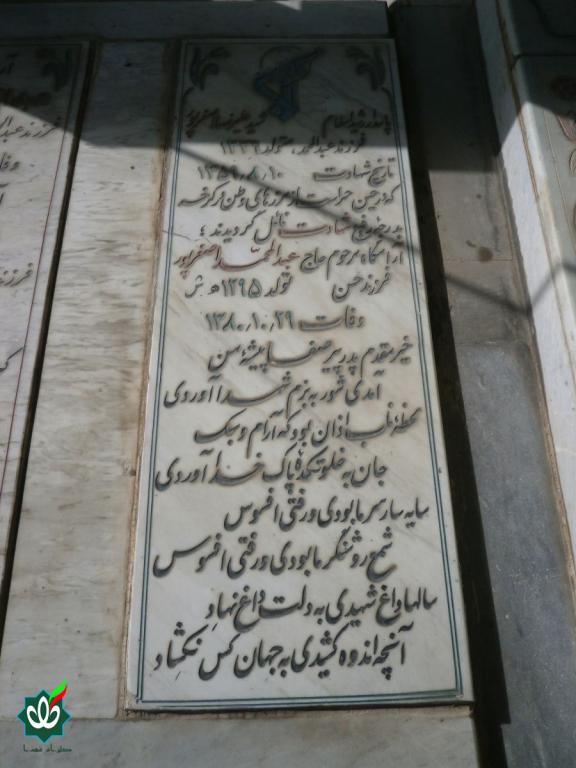 پاسدار رشید اسلام شهید علیرضا اصغرپور
فرزند عبدالمحمد متولد ۱۳۳۶
تاریخ شهادت ۱۳۵۹،۸،۱۰
که در حین حراست از مرزهای وطن در کرخه
بدرجه رفیع شهادت نائل گردیدند ؛
آرامگاه مرحوم حاج عبدالمحمد اصغرپور
فرزند حسن تولد ۱۲۹۵ ه ش
وفات ۱۳۸۰،۱۰،۲۹
خیر مقدم پدر پیر صفا پیشهٔ من
آمدی شور به بزم شهدا آوردی
لحظهٔ ناب اذان بود که آرام و سبک
جان به خلوتکدهٔ پاک خدا آوردی
سایه سار سر ما بودی و رفتی افسوس
شمع روشنگر ما بودی و رفتی افسوس
سالها داغ شهیدی به دلت داغ نهاد
آنچه اندوه کشیدی به جهان کس نکشاد
فرزند عبدالم
وفات
فرزند